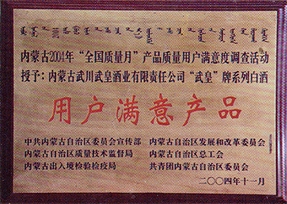 内蒙古2001年“全国质量月”产品质量用户满意度调查活动
授予：内蒙古武川武皇酒业有限责任公司“武皇”牌系列白酒
用户满意产品
中共内蒙古自治区委员会宣传部 内蒙古自治区发展和改革委员会
内蒙古自治区质量技术监督局 内蒙古自治区总工会
内蒙古出入境检验检疫局 共青团内蒙古自治区委员会
二〇〇四年十一月